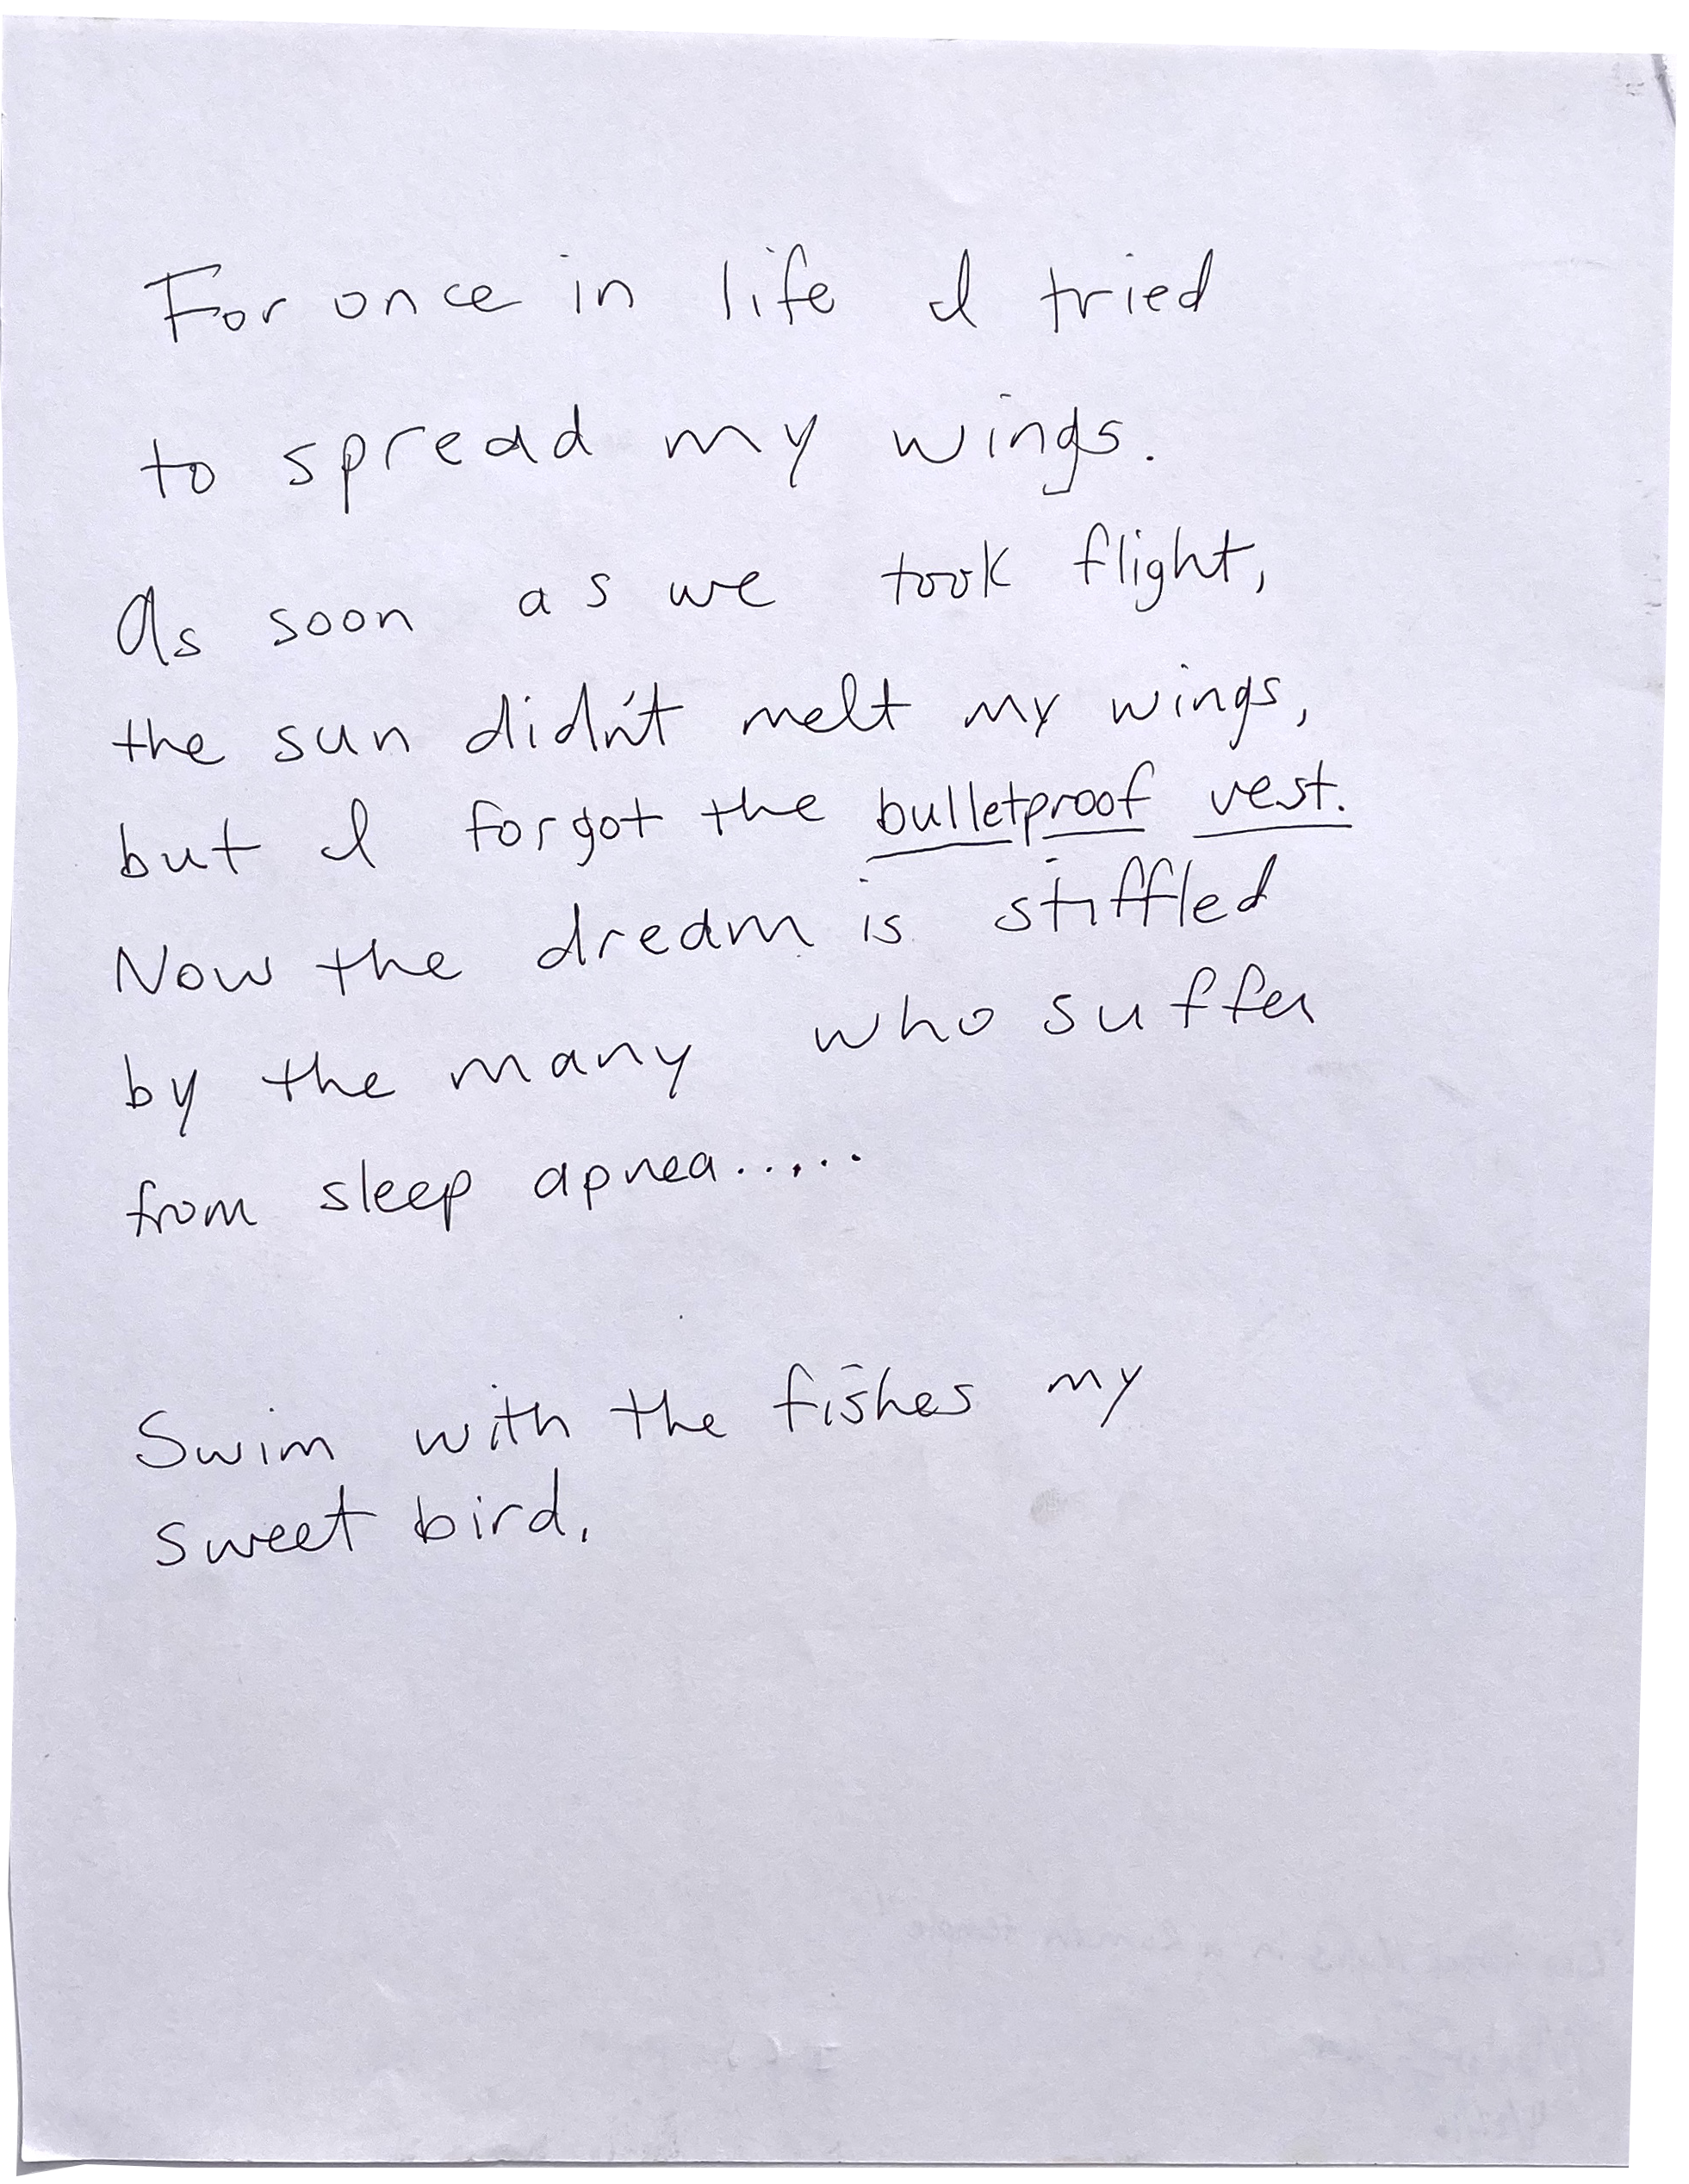 For once in life I tried
to spread my wings.
As soon as we took flight,
the sun didn't melt my wings,
but I forgot the bulletproof vest.
Now the dream is stiffled
by the many who suffer
from sleep apnea.....
Swim with the fishes my
sweet bird.